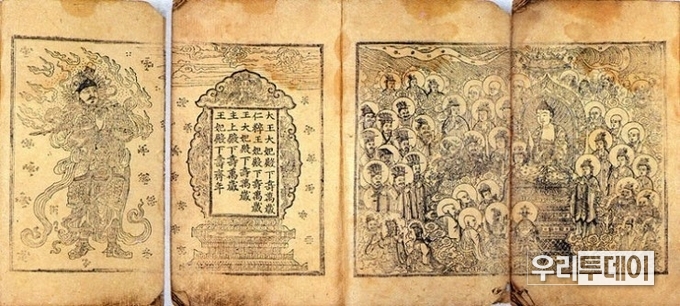 大王大妃殿下壽萬歲
仁粹王妃殿下壽萬歲
王大妃殿下壽萬歲
主上殿下壽萬歲
王妃殿下壽齊年
우리투데이